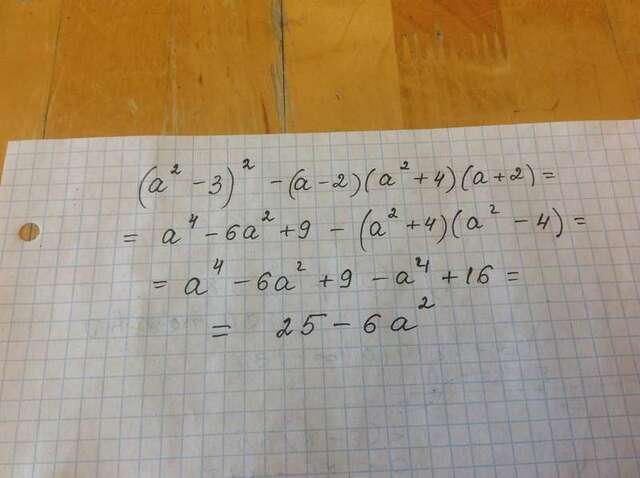 (a² - 3)² - (a - 2)(a² + 4)(a + 2) =
= a⁴ - 6a² + 9 - (a² + 4)(a² - 4) =
= a⁴ - 6a² + 9 - a⁴ + 16 =
= 25 - 6a²